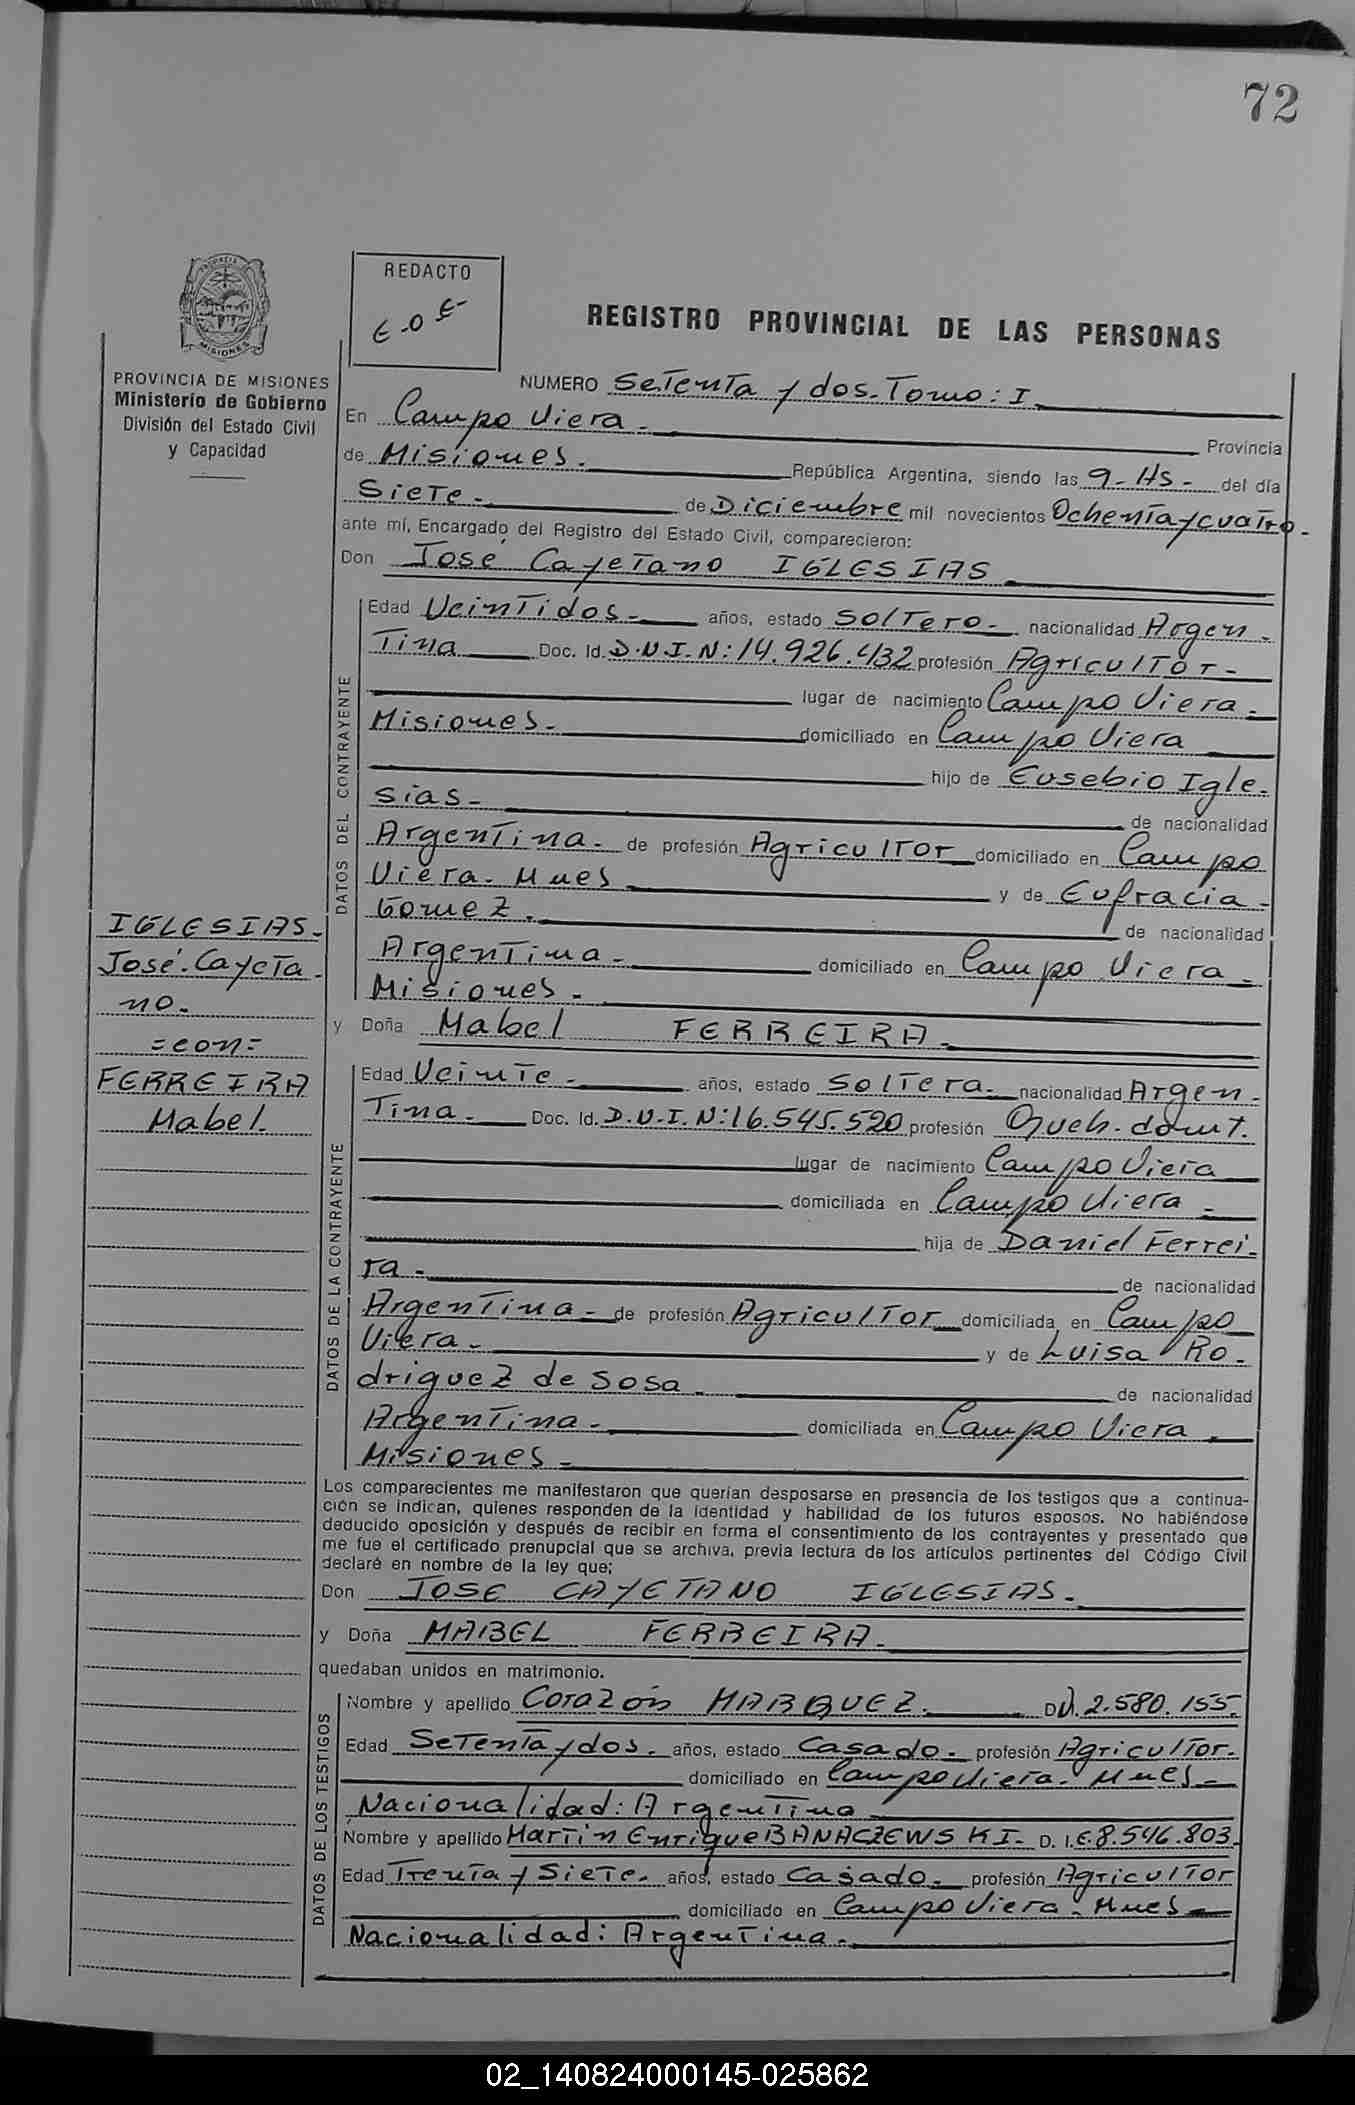 72
PROVINCIA
MISIONES
REDACTO
REGISTRO PROVINCIAL DE LAS PERSONAS
PROVINCIA DE MISIONES
Ministerio de Gobierno
División del Estado Civil
y Capacidad
NUMERO SeTenTa y dos. Tomo: I
En Campo Viera. Provincia
de Misiones. República Argentina, siendo las 9-Hs- del día
SieTe. de Diciembre mil novecientos OchenTa y cuaTro.
ante mí, Encargado del Registro del Estado Civil, comparecieron:
Don José CayeTano IGLESIAS
DATOS DEL CONTRAYENTE
Edad VeinTidos. años, estado SolTero. nacionalidad Argen.
Tina Doc. Id. D.N.I.N: 14.926.432 profesión AgriculTor.
lugar de nacimiento Campo Viera.
Misiones. domiciliado en Campo Viera
hijo de Eusebio Igle.
sias. de nacionalidad
ArgenTina. de profesión AgriculTor domiciliado en Campo
Viera. Mnes y de Eufracia.
Gomez. de nacionalidad
ArgenTina. domiciliado en Campo Viera.
Misiones.
IGLESIAS.
José.CayeTa.
no.
=con=
FERREIRA
Mabel.
y Doña Mabel FERREIRA.
DATOS DE LA CONTRAYENTE
Edad VeinTe. años, estado SolTera. nacionalidad Argen.
Tina. Doc. Id. D.N.I.N: 16.545.520 profesión Queh. domt.
lugar de nacimiento Campo Viera
domiciliada en Campo Viera.
hija de Daniel Ferrei.
ra. de nacionalidad
ArgenTina. de profesión AgriculTor domiciliada en Campo
Viera. y de Luisa Ro.
driguez de Sosa. de nacionalidad
ArgenTina. domiciliada en Campo Viera.
Misiones.
Los comparecientes me manifestaron que querían desposarse en presencia de los testigos que a continua-
ción se indican, quienes responden de la identidad y habilidad de los futuros esposos. No habiéndose
deducido oposición y después de recibir en forma el consentimiento de los contrayentes y presentado que
me fue el certificado prenupcial que se archiva, previa lectura de los artículos pertinentes del Código Civil
declaré en nombre de la ley que;
Don JOSE CAYETANO IGLESIAS.
y Doña MABEL FERREIRA.
quedaban unidos en matrimonio.
DATOS DE LOS TESTIGOS
Nombre y apellido Corazón MARQUEZ. 2.580.155.
Edad SeTenTa y dos. años, estado Casado. profesión AgriculTor.
domiciliado en Campo Viera. Mnes.
Nacionalidad: ArgenTina
Nombre y apellido MarTin Enrique BANACZEWSKI. D. I.E. 8.546.803.
Edad TreinTa y SieTe. años, estado Casado. profesión AgriculTor
domiciliado en Campo Viera. Mnes
Nacionalidad: ArgenTina.
02_140824000145-025862